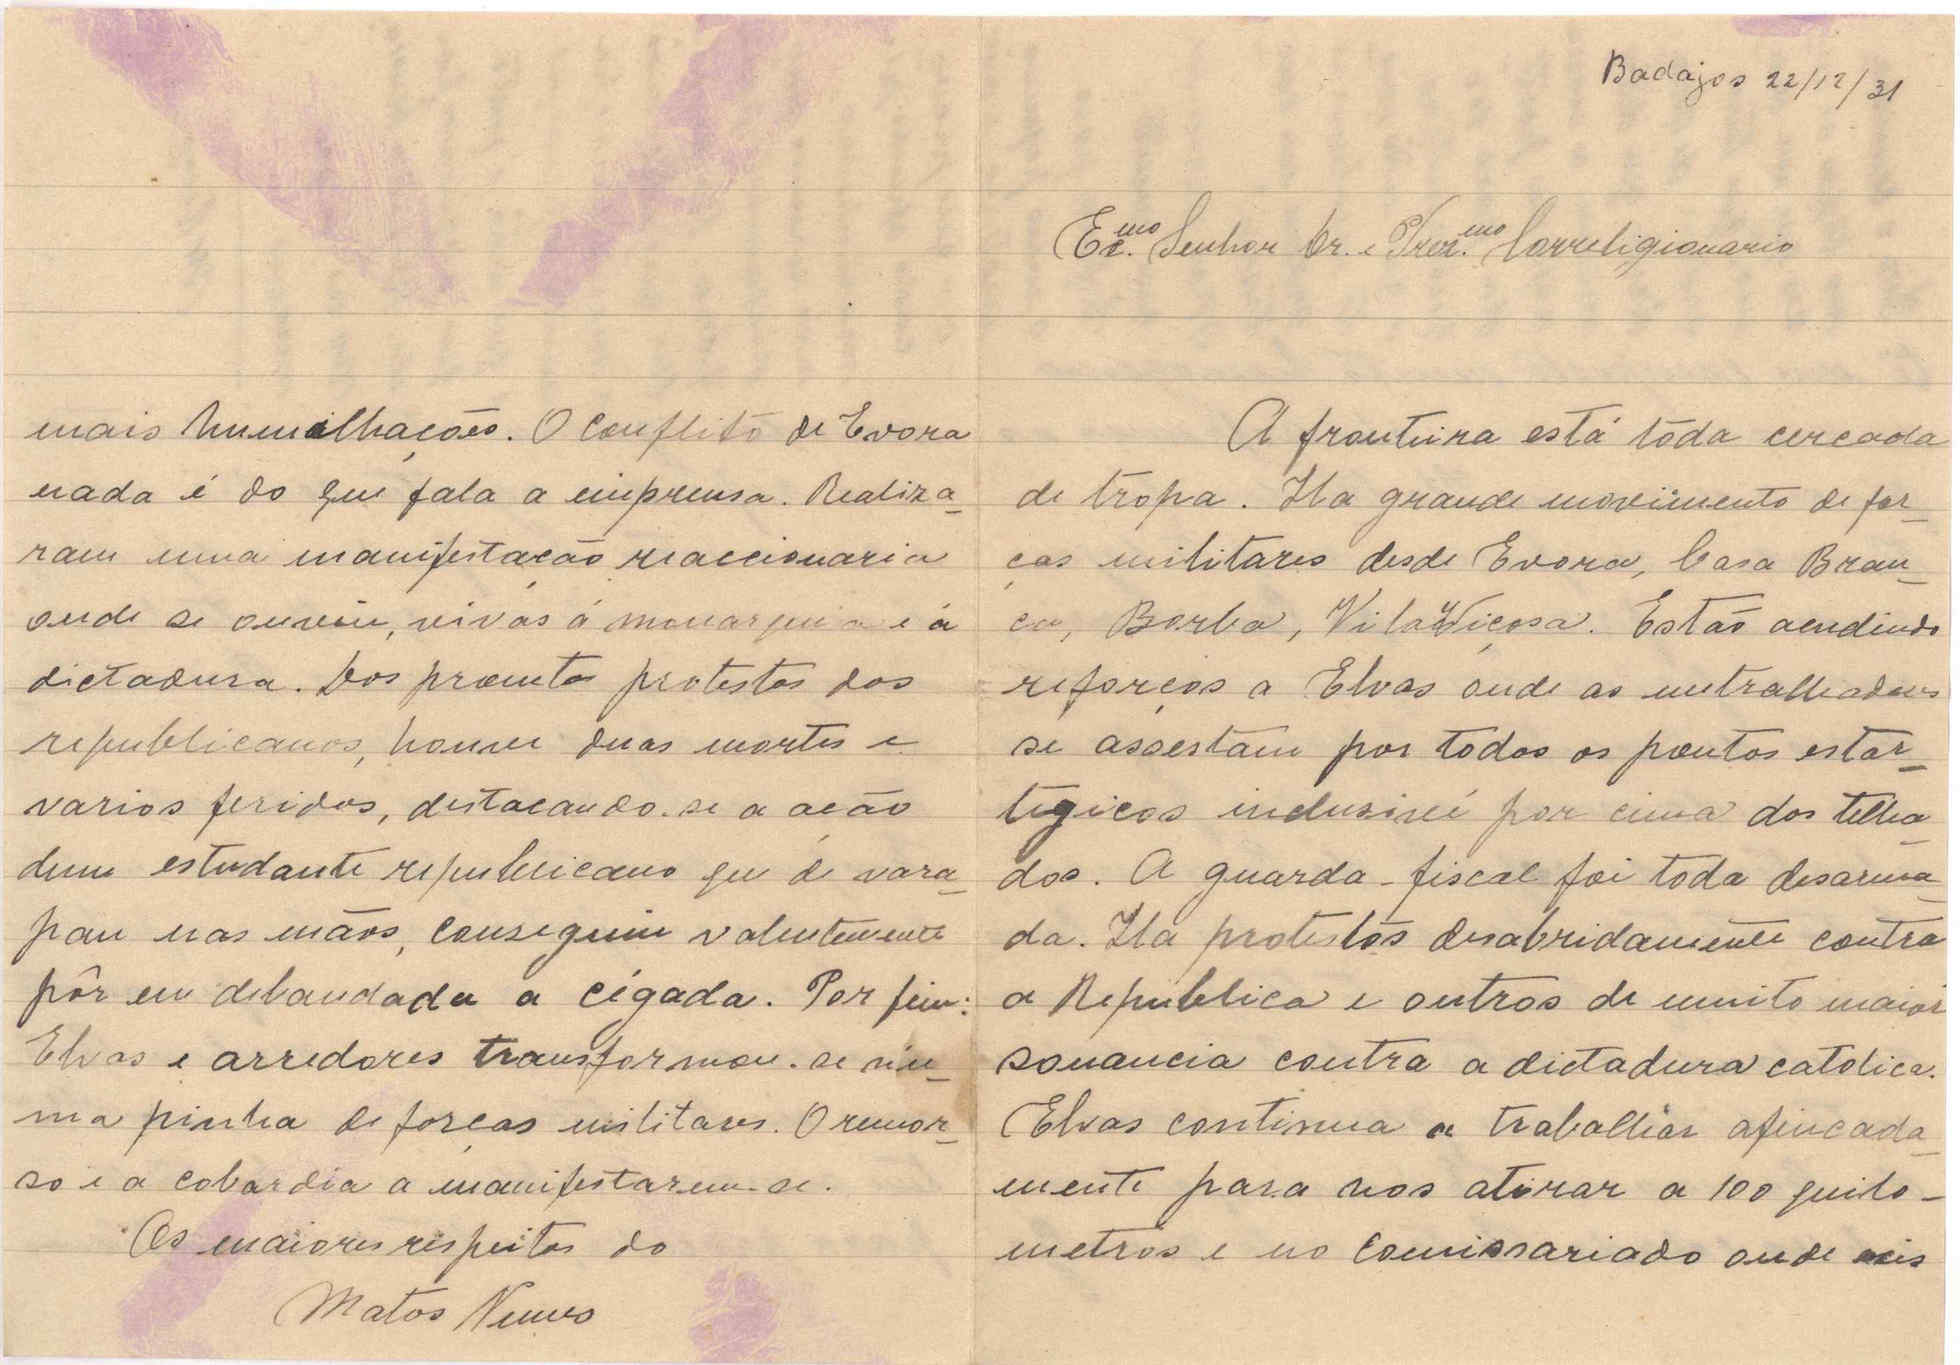 Badajos 22/12/31
Ex.mo Senhor Dr. e Prez.mo Correligionario
A fronteira está tôda cercada
de tropa. Ha grande movimento de for-
ças militares desde Evora, Casa Bran-
ca, Borba, Vila Viçosa. Estão acudindo
reforços a Elvas onde as metralhadoras
se assestam por todos os pontos estar-
tegicos inclusivé por cima dos telha-
dos. A guarda-fiscal foi toda desarma-
da. Ha protestos desabridamente contra
a Republica e outros de muito maior
sonancia contra a dictadura catolica.
Elvas continua a trabalhar afincada-
mente para nos atirar a 100 quilo-
metros e no comissariado onde
mais humilhações. O conflito de Evora
nada é do que fala a imprensa. Realiza-
ram uma manifestação reaccionaria
onde se ouviu, vivas á monarquia e á
dictadura. Dos promtos protestos dos
republicanos, houve duas mortes e
varios feridos, destacando-se a ação
dum estudante republicano que de vara-
pau nas mãos, conseguiu valentemente
pôr em debandada a cégada. Por fim:
Elvas e arredores transformou-se nu-
ma pinha de forças militares. O remor-
so e a cobardia a manifestarem-se.
Os maiores respeitos do
Matos Nunes